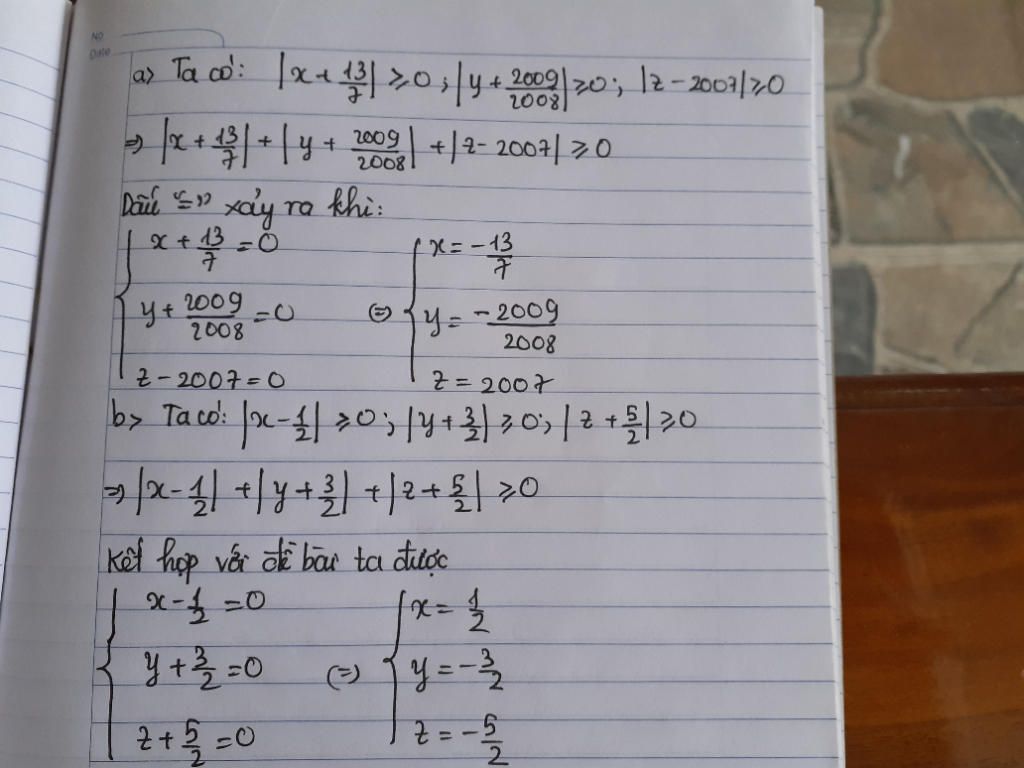 No
Date
a> Ta có: |x + 13/7| ≥ 0 ; |y + 2009/2008| ≥ 0 ; |z - 2007| ≥ 0
=> |x + 13/7| + |y + 2009/2008| + |z - 2007| ≥ 0
Dấu "=" xảy ra khi:
{ x + 13/7 = 0 { x = -13/7
y + 2009/2008 = 0 (=) y = -2009/2008
z - 2007 = 0 z = 2007
b> Ta có: |x - 1/2| ≥ 0 ; |y + 3/2| ≥ 0 ; |z + 5/2| ≥ 0
=> |x - 1/2| + |y + 3/2| + |z + 5/2| ≥ 0
Kết hợp với đề bài ta được
{ x - 1/2 = 0 { x = 1/2
y + 3/2 = 0 (=) y = -3/2
z + 5/2 = 0 z = -5/2